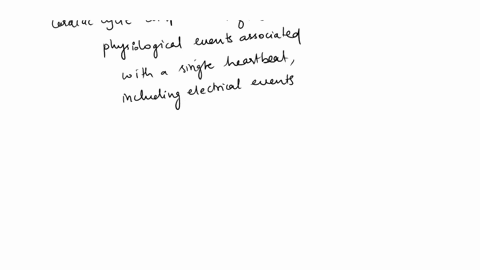 cardiac cycle
physiological events associated
with a single heartbeat,
including electrical events